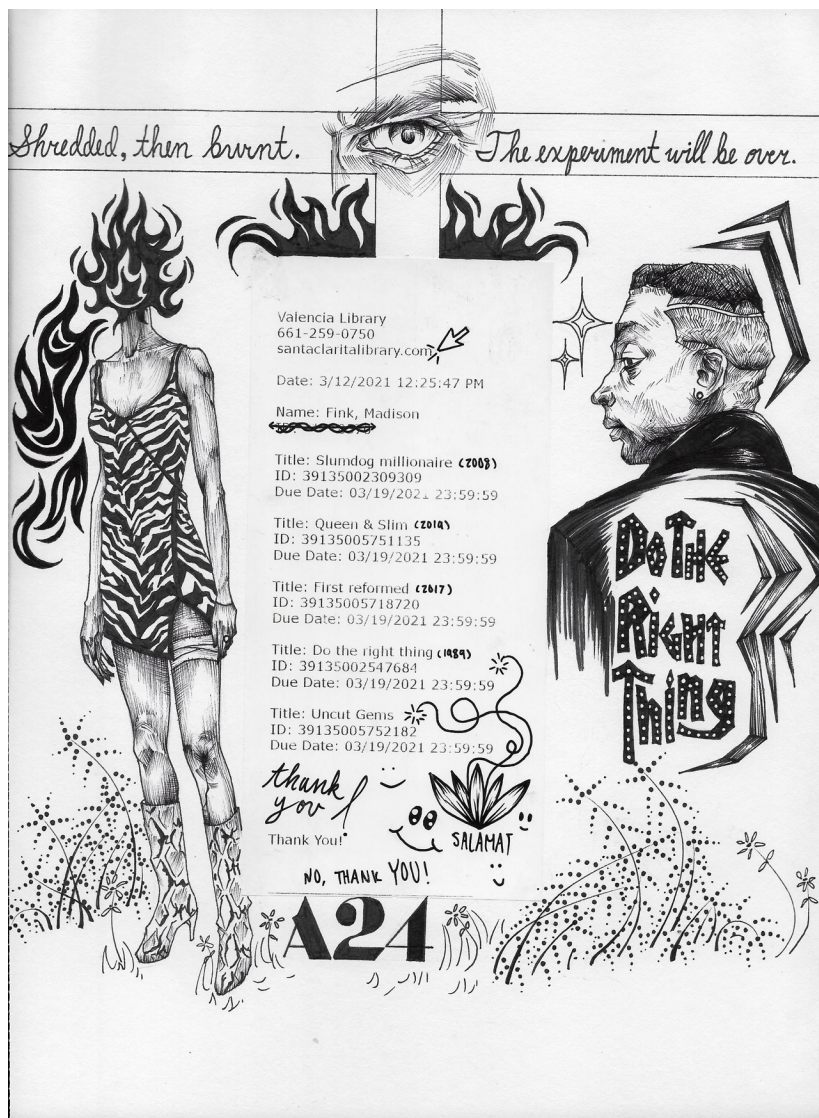 Shredded, then burnt.
The experiment will be over.
Valencia Library
661-259-0750
santaclaritalibrary.com
Date: 3/12/2021 12:25:47 PM
Name: Fink, Madison
Title: Slumdog millionaire (2008)
ID: 39135002309309
Due Date: 03/19/2021 23:59:59
Title: Queen & Slim (2019)
ID: 39135005751135
Due Date: 03/19/2021 23:59:59
Title: First reformed (2017)
ID: 39135005718720
Due Date: 03/19/2021 23:59:59
Title: Do the right thing (1989)
ID: 39135002547684
Due Date: 03/19/2021 23:59:59
Title: Uncut Gems
ID: 39135005752182
Due Date: 03/19/2021 23:59:59
thank
you!
Thank You!
SALAMAT
NO, THANK YOU!
DO THE
RiGHT
THing
A24